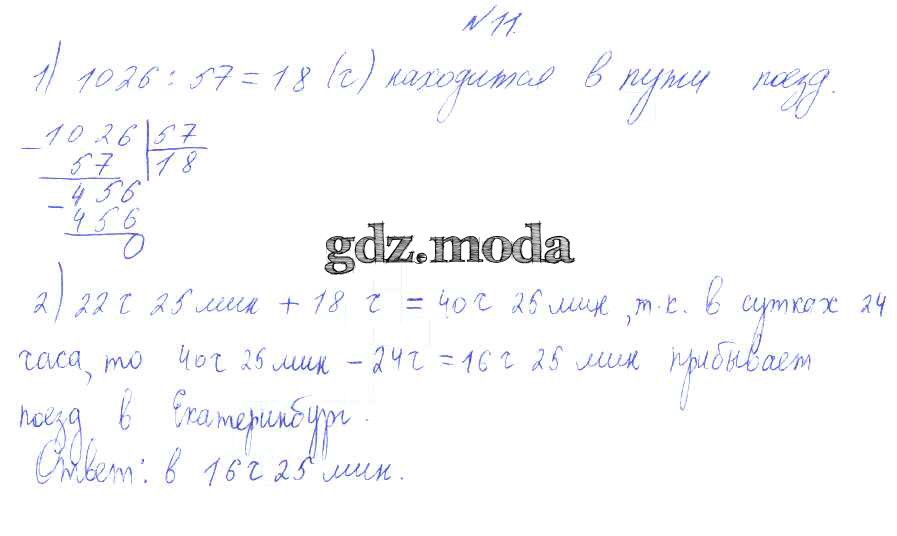 № 11.
1) 1026 : 57 = 18 (ч) находится в пути поезд.
− 1026 | 57
57 | 18
− 456
456
0
gdz.moda
2) 22 ч 25 мин + 18 ч = 40 ч 25 мин, т.к. в сутках 24
часа, то 40 ч 25 мин − 24 ч = 16 ч 25 мин прибывает
поезд в Екатеринбург.
Ответ: в 16 ч 25 мин.